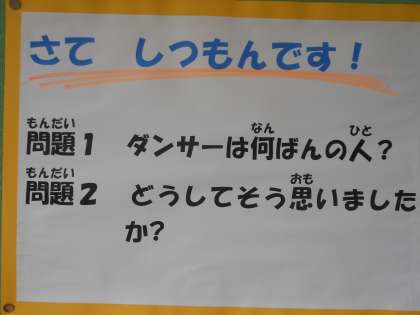 さて　しつもんです！
もんだい
問題１　ダンサーは何ばんの人？
なん ひと
もんだい
問題２　どうしてそう思いました
おも
か？